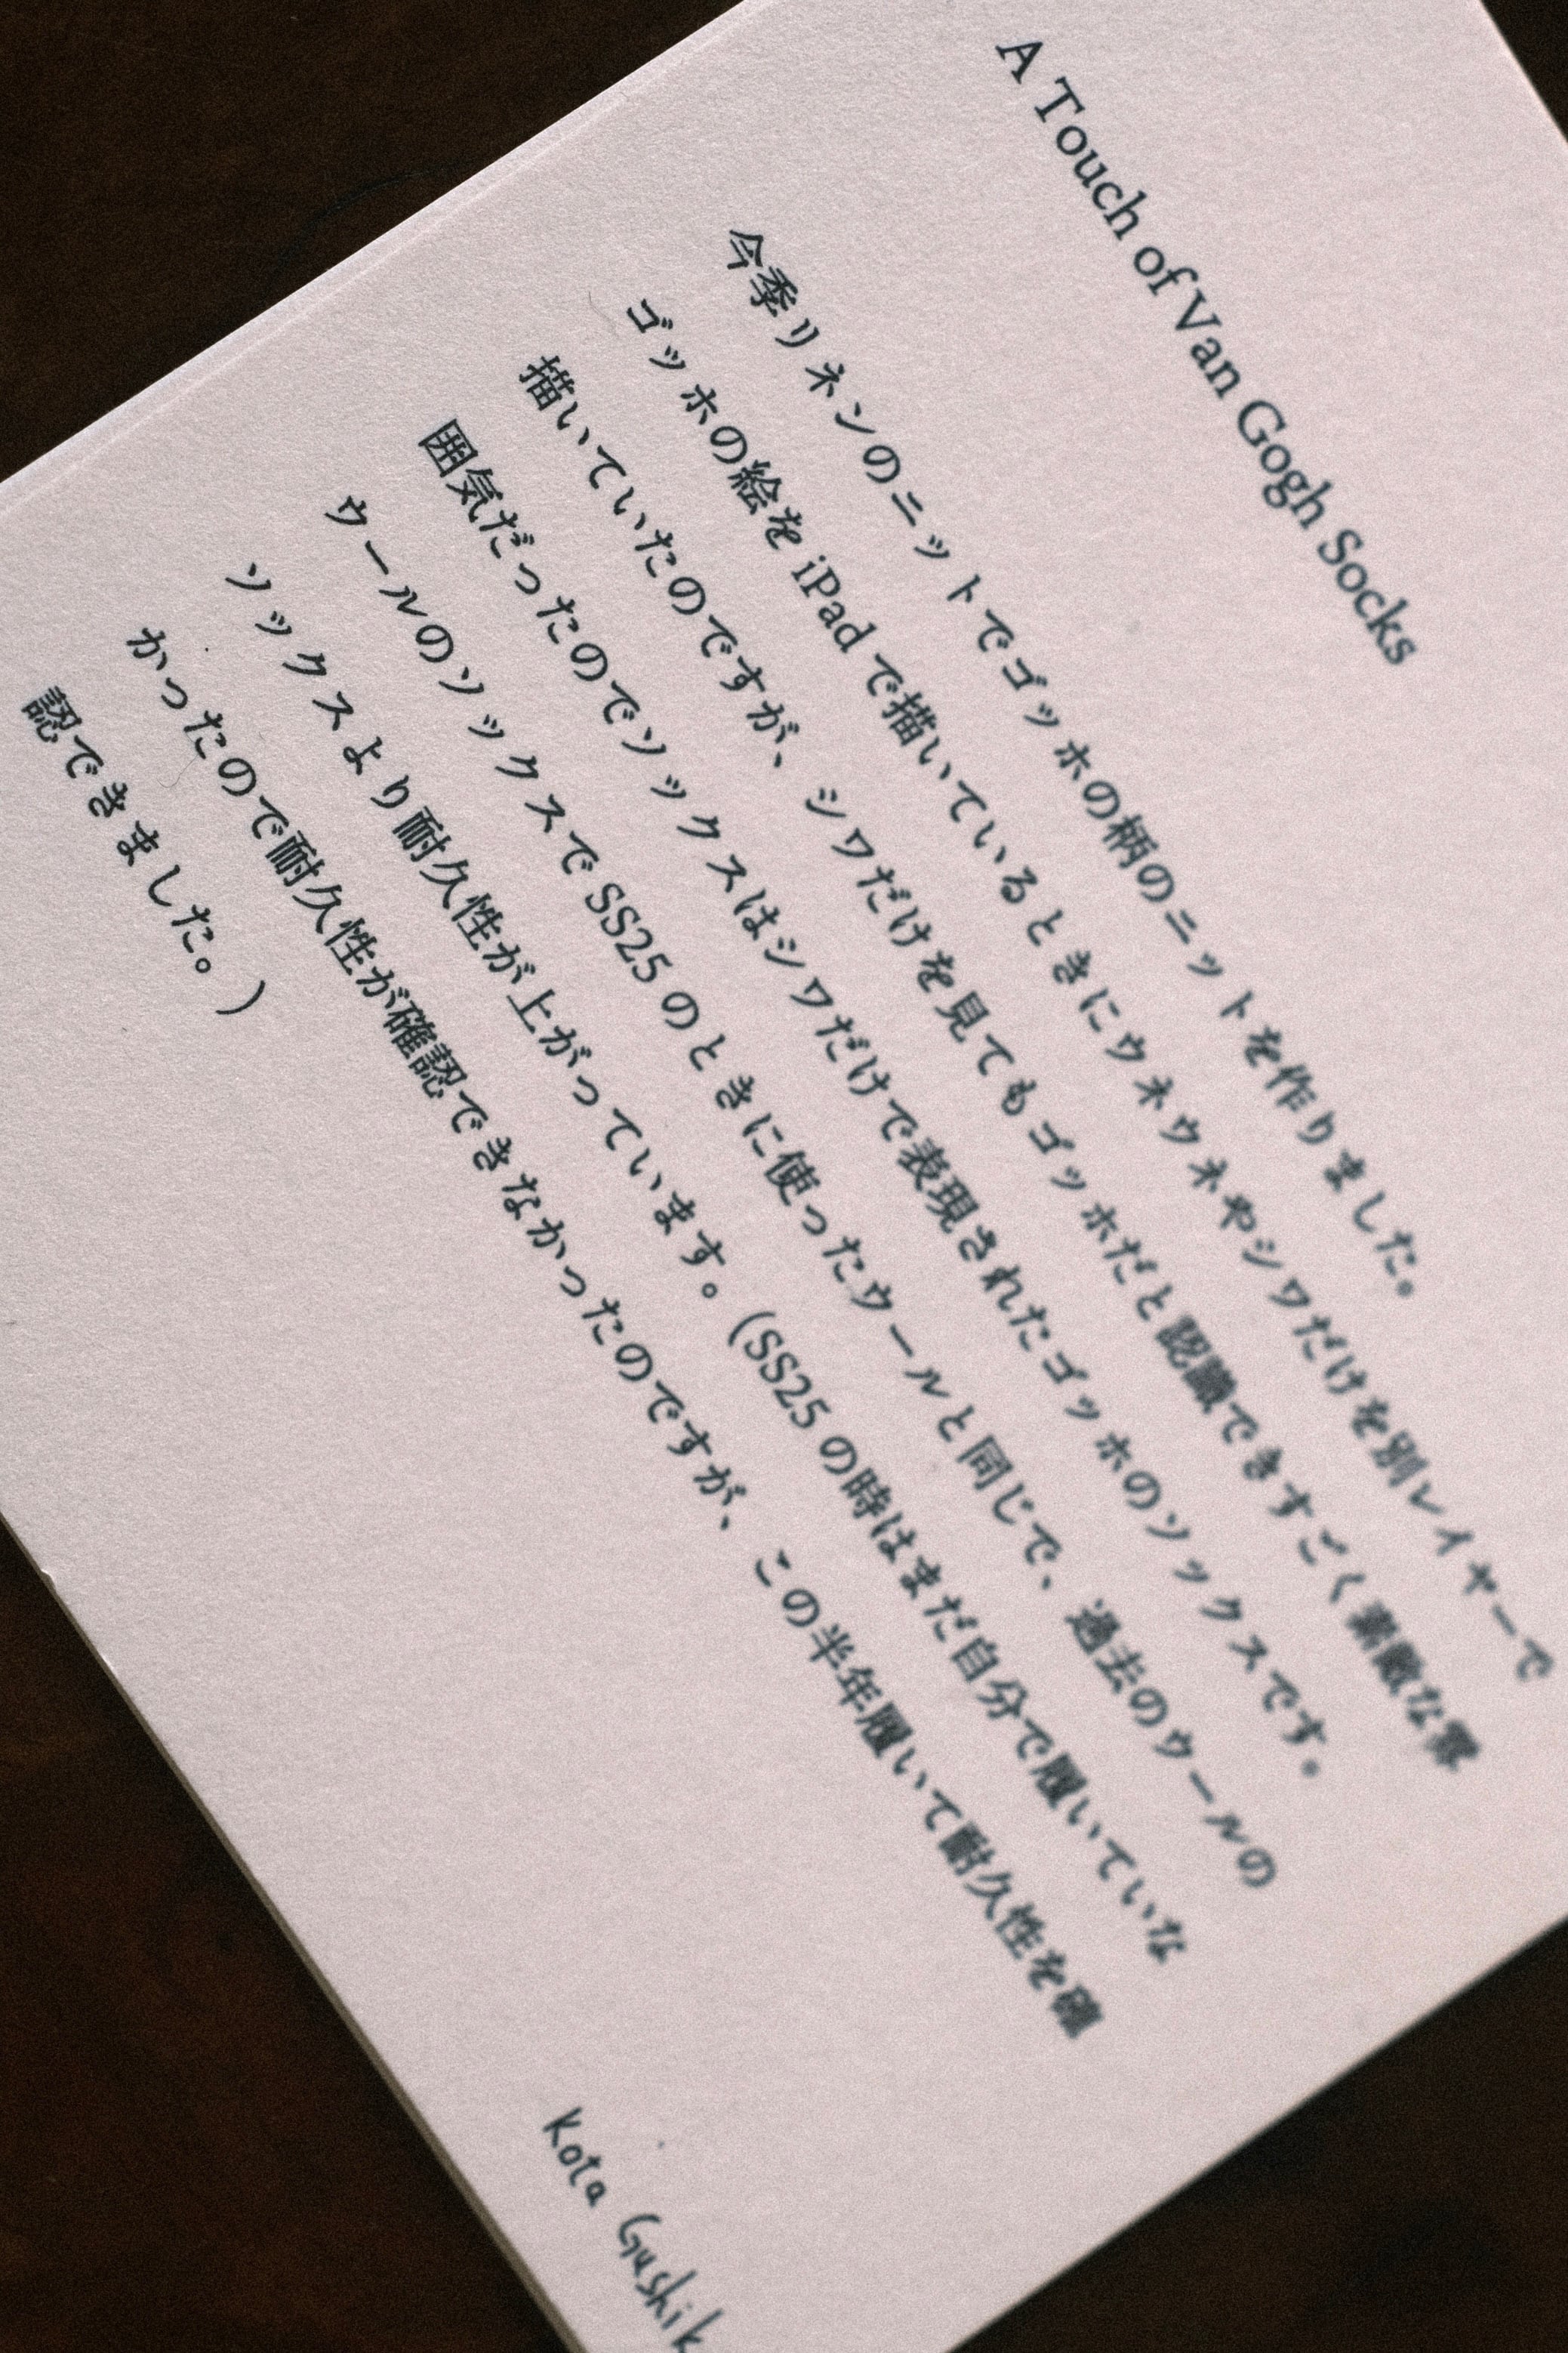 A Touch of Van Gogh Socks
今季リネンのニットでゴッホの柄のニットを作りました。
ゴッホの絵を iPad で描いているときにウネウネやシワだけを別レイヤーで
描いていたのですが、シワだけを見てもゴッホだと認識できすごく素敵な雰
囲気だったのでソックスはシワだけで表現されたゴッホのソックスです。
ウールのソックスで SS25 のときに使ったウールと同じで、過去のウールの
ソックスより耐久性が上がっています。(SS25 の時はまだ自分で履いていな
かったので耐久性が確認できなかったのですが、この半年履いて耐久性を確
認できました。)
Kota Gushik